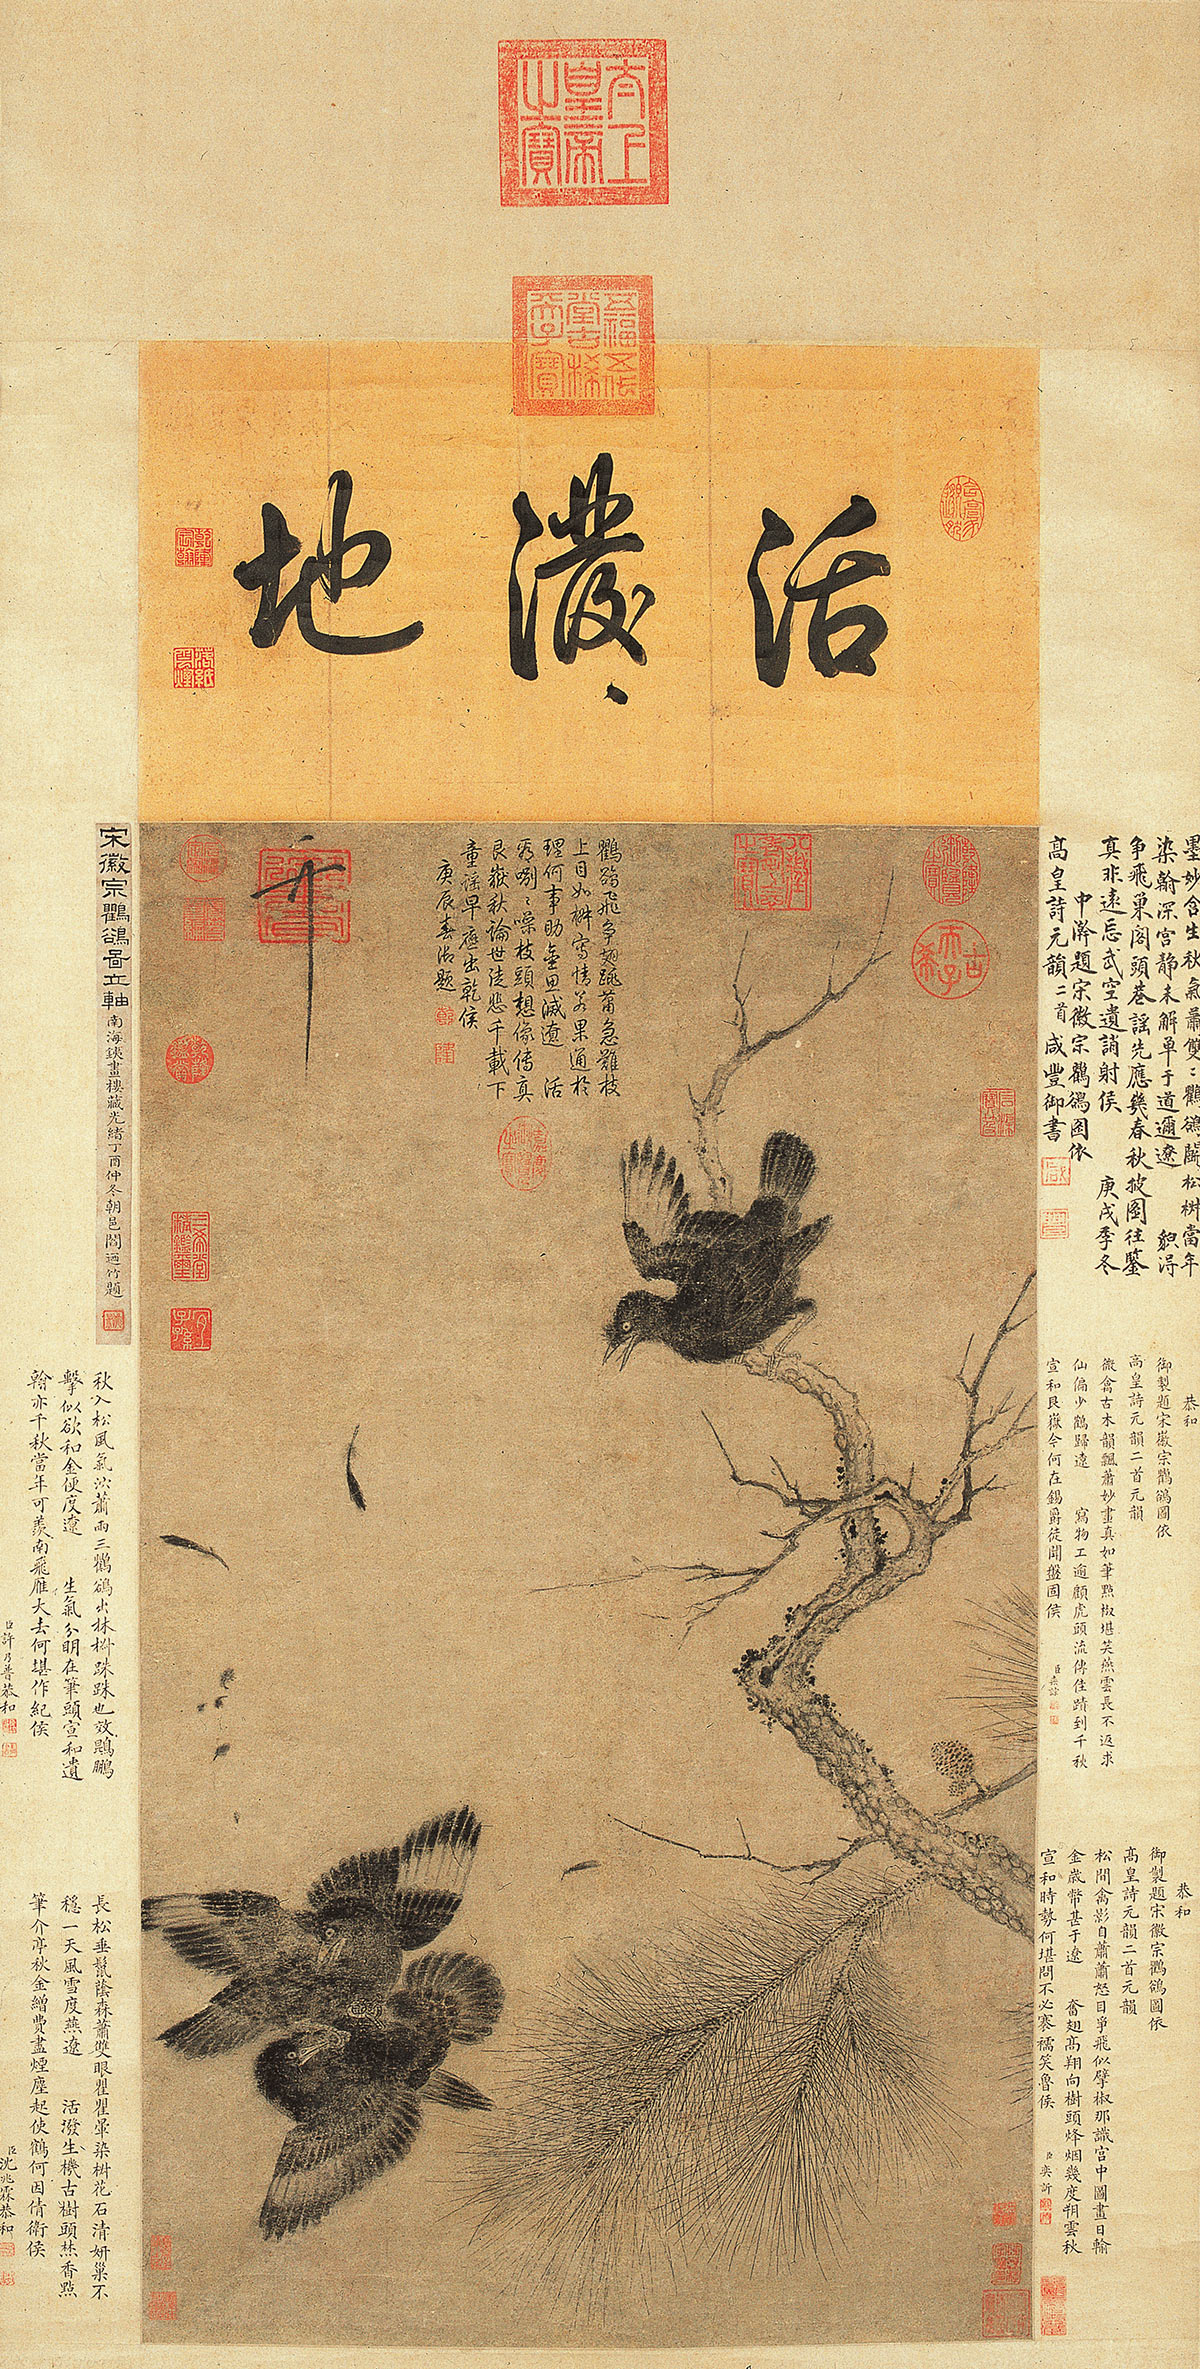 太上皇帝之寶
五福五代堂古稀天子寶
活潑〻地
乾隆宸翰
落紙雲煙
古希天子
鸜鵒飛爭翅跣蕭急難枝
上目如椒寫情若果通於
理何事助金思滅遼 活
喇〻噪枝頭想像傳真
艮嶽秋論世徒悲千載下
童謠早應出乾侯
庚辰春御題
乾隆
墨妙含生秋氣蕭雙〻鸜鵒鬬松樹當年
染翰深宮靜未解單于道邇遼 貌得
爭飛巢閣頭巷謠先應幾春秋披圖往鑒
真非遠忘武空遺誚射侯 庚戌季冬
中澣題宋徽宗鸜鵒圖依
高皇詩元韻二首咸豐御書
恭和
御製題宋徽宗鸜鵒圖依
高皇詩元韻二首元韻
微禽古木韻飄蕭妙畫真如筆點椒堪笑燕雲長不返求
仙偏少鶴歸遼 寫物工逾顧虎頭流傳佳蹟到千秋
宣和艮嶽今何在錫爵徒聞盤固侯
恭和
御製題宋徽宗鸜鵒圖依
高皇詩元韻二首元韻
松間禽影自蕭蕭怒目爭飛似擘椒那識宮中圖畫日輸
金歲幣甚于遼 奮翅高翔向樹頭烽烟幾度朔雲秋
宣和時勢何堪問不必褰襦笑魯侯
臣奕訢
宋徽宗鸜鵒圖立軸
南海銕畫樓藏光緒丁酉仲冬朝邑閻迺竹題
秋入松風氣沴蕭兩三鸜鵒出林椒跦跦也效鵾鵬
擊似欲和金便度遼 生氣分明在筆頭宣和遺
翰亦千秋當年可羨南飛雁大去何堪作紀侯
臣許乃普恭和
長松垂鬣蔭森蕭雙眼瞿瞿暈染樹花石清妍巢不
穩一天風雪度燕遼 活潑生機古樹頭焚香點
筆介亭秋金繒費盡煙塵起使鶴何因倩衛侯
臣沈兆霖恭和